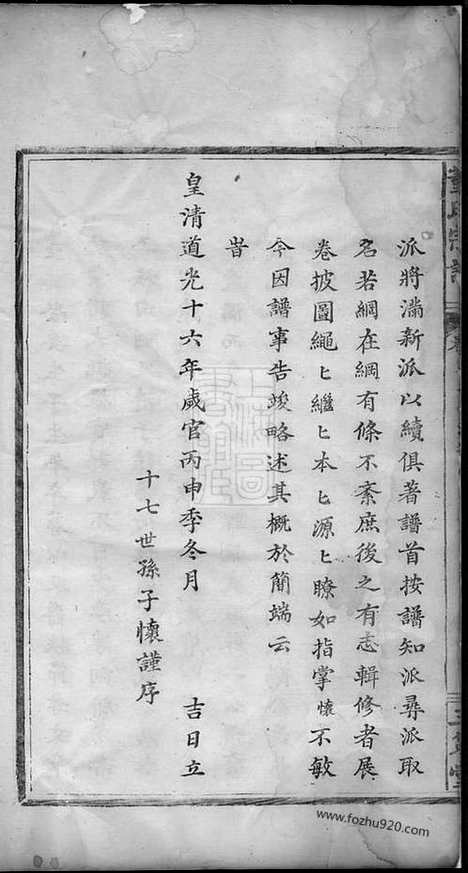 派將滿新派以續俱著譜首按譜知派尋派取
名若綱在綱有條不紊庶後之有志輯修者展
卷披圖繩〻繼〻本〻源〻瞭如指掌懷不敏
今因譜事告竣略述其概於簡端云
旹
皇清道光十六年歲官丙申季冬月　吉日立
十七世孫子懷謹序
www.fozhu920.com